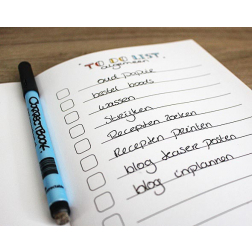 TO DO LIST
algemeen
oud papier
bestel boeks
wassen
Strijken
Recepten zoeken
Recepten printen
blog teaser posten
blog inplannen
CORRECTBOOK